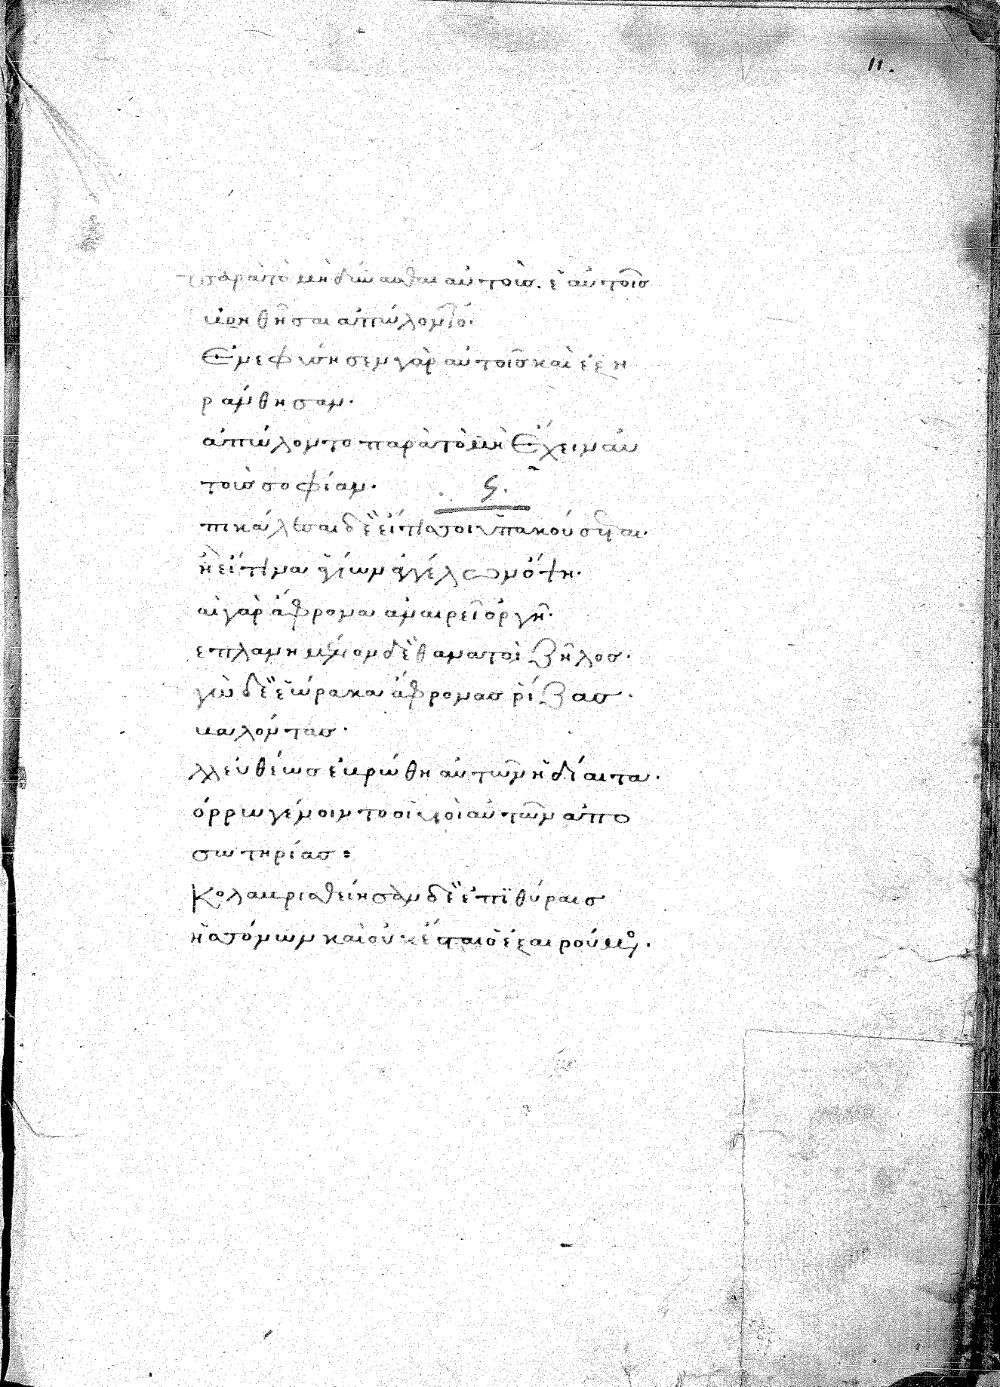 11.
παρὰ τὸ μὴ δύνασθαι αὐτοὺς ἑαυτοῖς
βοηθῆσαι ἀπώλοντο·
Ἐνεφύσησεν γὰρ αὐτοῖς καὶ ἐξη
ράνθησαν·
ἀπώλοντο παρὰ τὸ μὴ ἔχειν αὐ
τοὺς σοφίαν· ς·
πικάλεσαι δὲ εἴ τίς σοι ὑπακούσεται·
ἢ εἴ τινα ἁγίων ἀγγέλων ὄψη·
αὶ γὰρ ἄφρονα ἀναιρεῖ ὀργή·
πεπλανημένον δὲ θανατοῖ ζῆλος·
γὼ δὲ ἑώρακα ἄφρονας ῥίζας
βαλόντας·
λλ εὐθέως ἐβρώθη αὐτῶν ἡ δίαιτα·
όρρω γένοιντο οἱ υἱοὶ αὐτῶν ἀπὸ
σωτηρίας:
Κολαβρισθείησαν δὲ ἐπὶ θύραις
ἡσσόνων καὶ οὐκ ἔσται ὁ ἐξαιρούμενος·